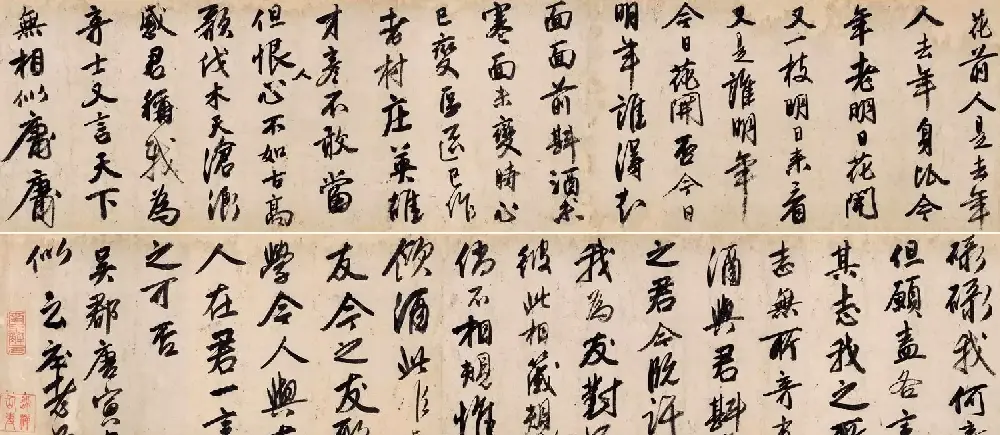 花前人是去年
人去年身比今
年老明日花開
又一枝明日來看
又是誰明年
今日花開否今日
明年誰得知
面面前斟酒未
寒面未變時心
已變區區已作
老村莊英雄
才彥不敢當
但恨人心不如古高
歌伐木天滄浪
感君稱我為
奇士又言天下
無相似庸庸
碌碌我何奇
但願盡各言
其志我之所
志無所奇
酒與君斟
之君今既許
我為友對
彼此相箴規
倘不相規惟
領酒此後
友今之友
學今人與
人在君一言
之可否
吳郡唐寅
似云莊老